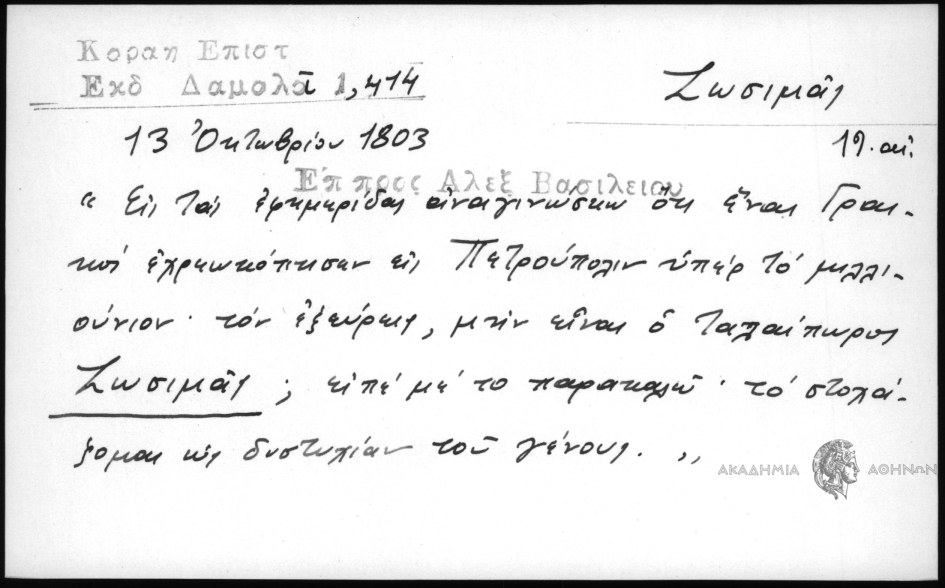 Κοραη Επιστ
Εκδ Δαμαλᾶ 1,414
Ζωσιμᾶς
13 Ὀκτωβρίου 1803
19. αἰ.
Ἐπ προς Αλεξ Βασιλειου
“ Εἰς τὰς ἐφημερίδας ἀναγινώσκω ὅτι ἕνας Γραι-
κὸς ἐχρεωκόπησεν εἰς Πετρούπολιν ὑπὲρ τὸ μιλλι-
ούνιον· τὸν ἐξεύρεις, μὴν εἶναι ὁ ταλαίπωρος
Ζωσιμᾶς ; εἰπέ μέ το παρακαλῶ · τὸ στοχά-
ζομαι ὡς δυστυχίαν τοῦ γένους. „
ΑΚΑΔΗΜΙΑ ΑΘΗΝΩΝ